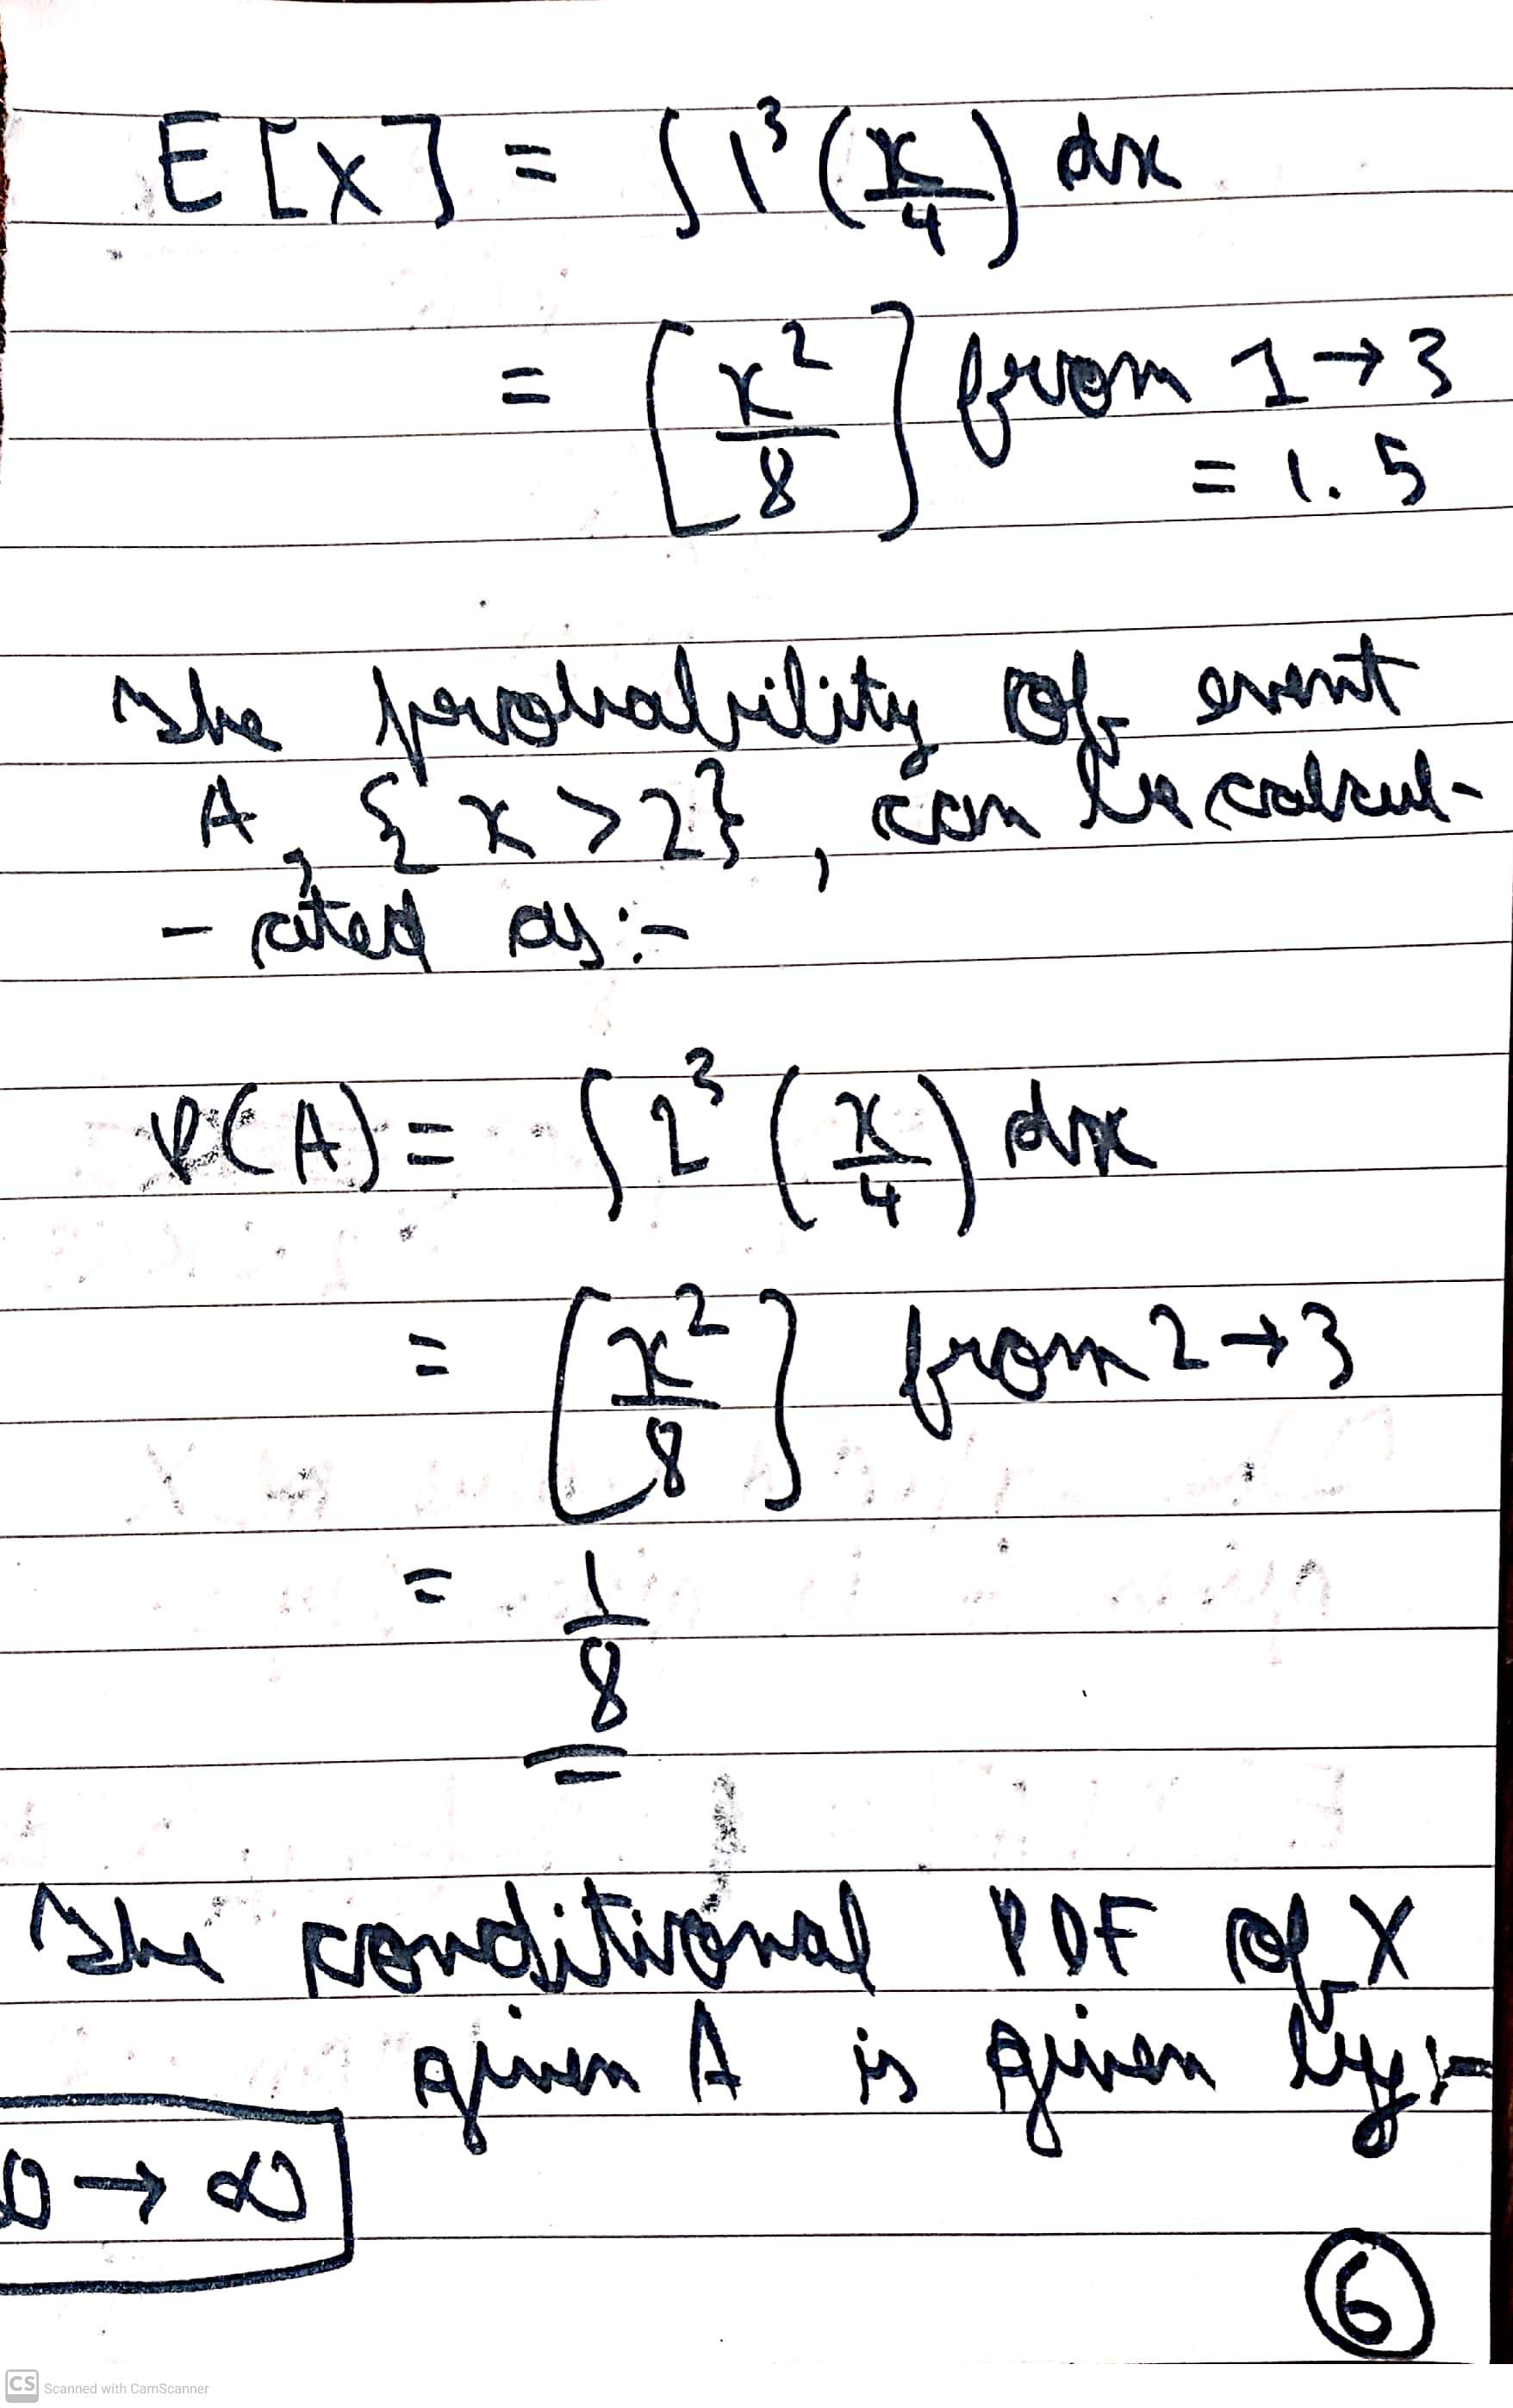 E[X] = ∫1³(x/4) dx
= [x²/8] from 1→3
= 1.5
The probability of event
A, {x>2}, can be calcul-
-ated as:-
P(A) = ∫2³(x/4) dx
= [x²/8] from 2→3
= 1/8
The conditional PDF of X
given A is given by:-
0→∞
6
CS Scanned with CamScanner